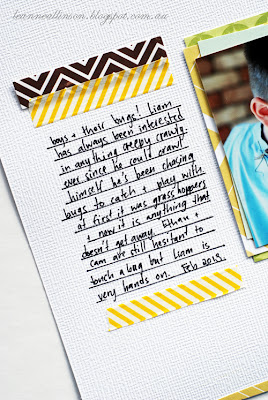 leanneallinson.blogspot.com.au
boys + their bugs! Liam
has always been interested
in anything creepy crawly.
ever since he could crawl
himself he's been chasing
bugs to catch + play with
at first it was grasshoppers
+ now it is anything that
doesn't get away. Ethan +
cam are still hesitant to
touch a bug but Liam is
very hands on. Feb 2013.